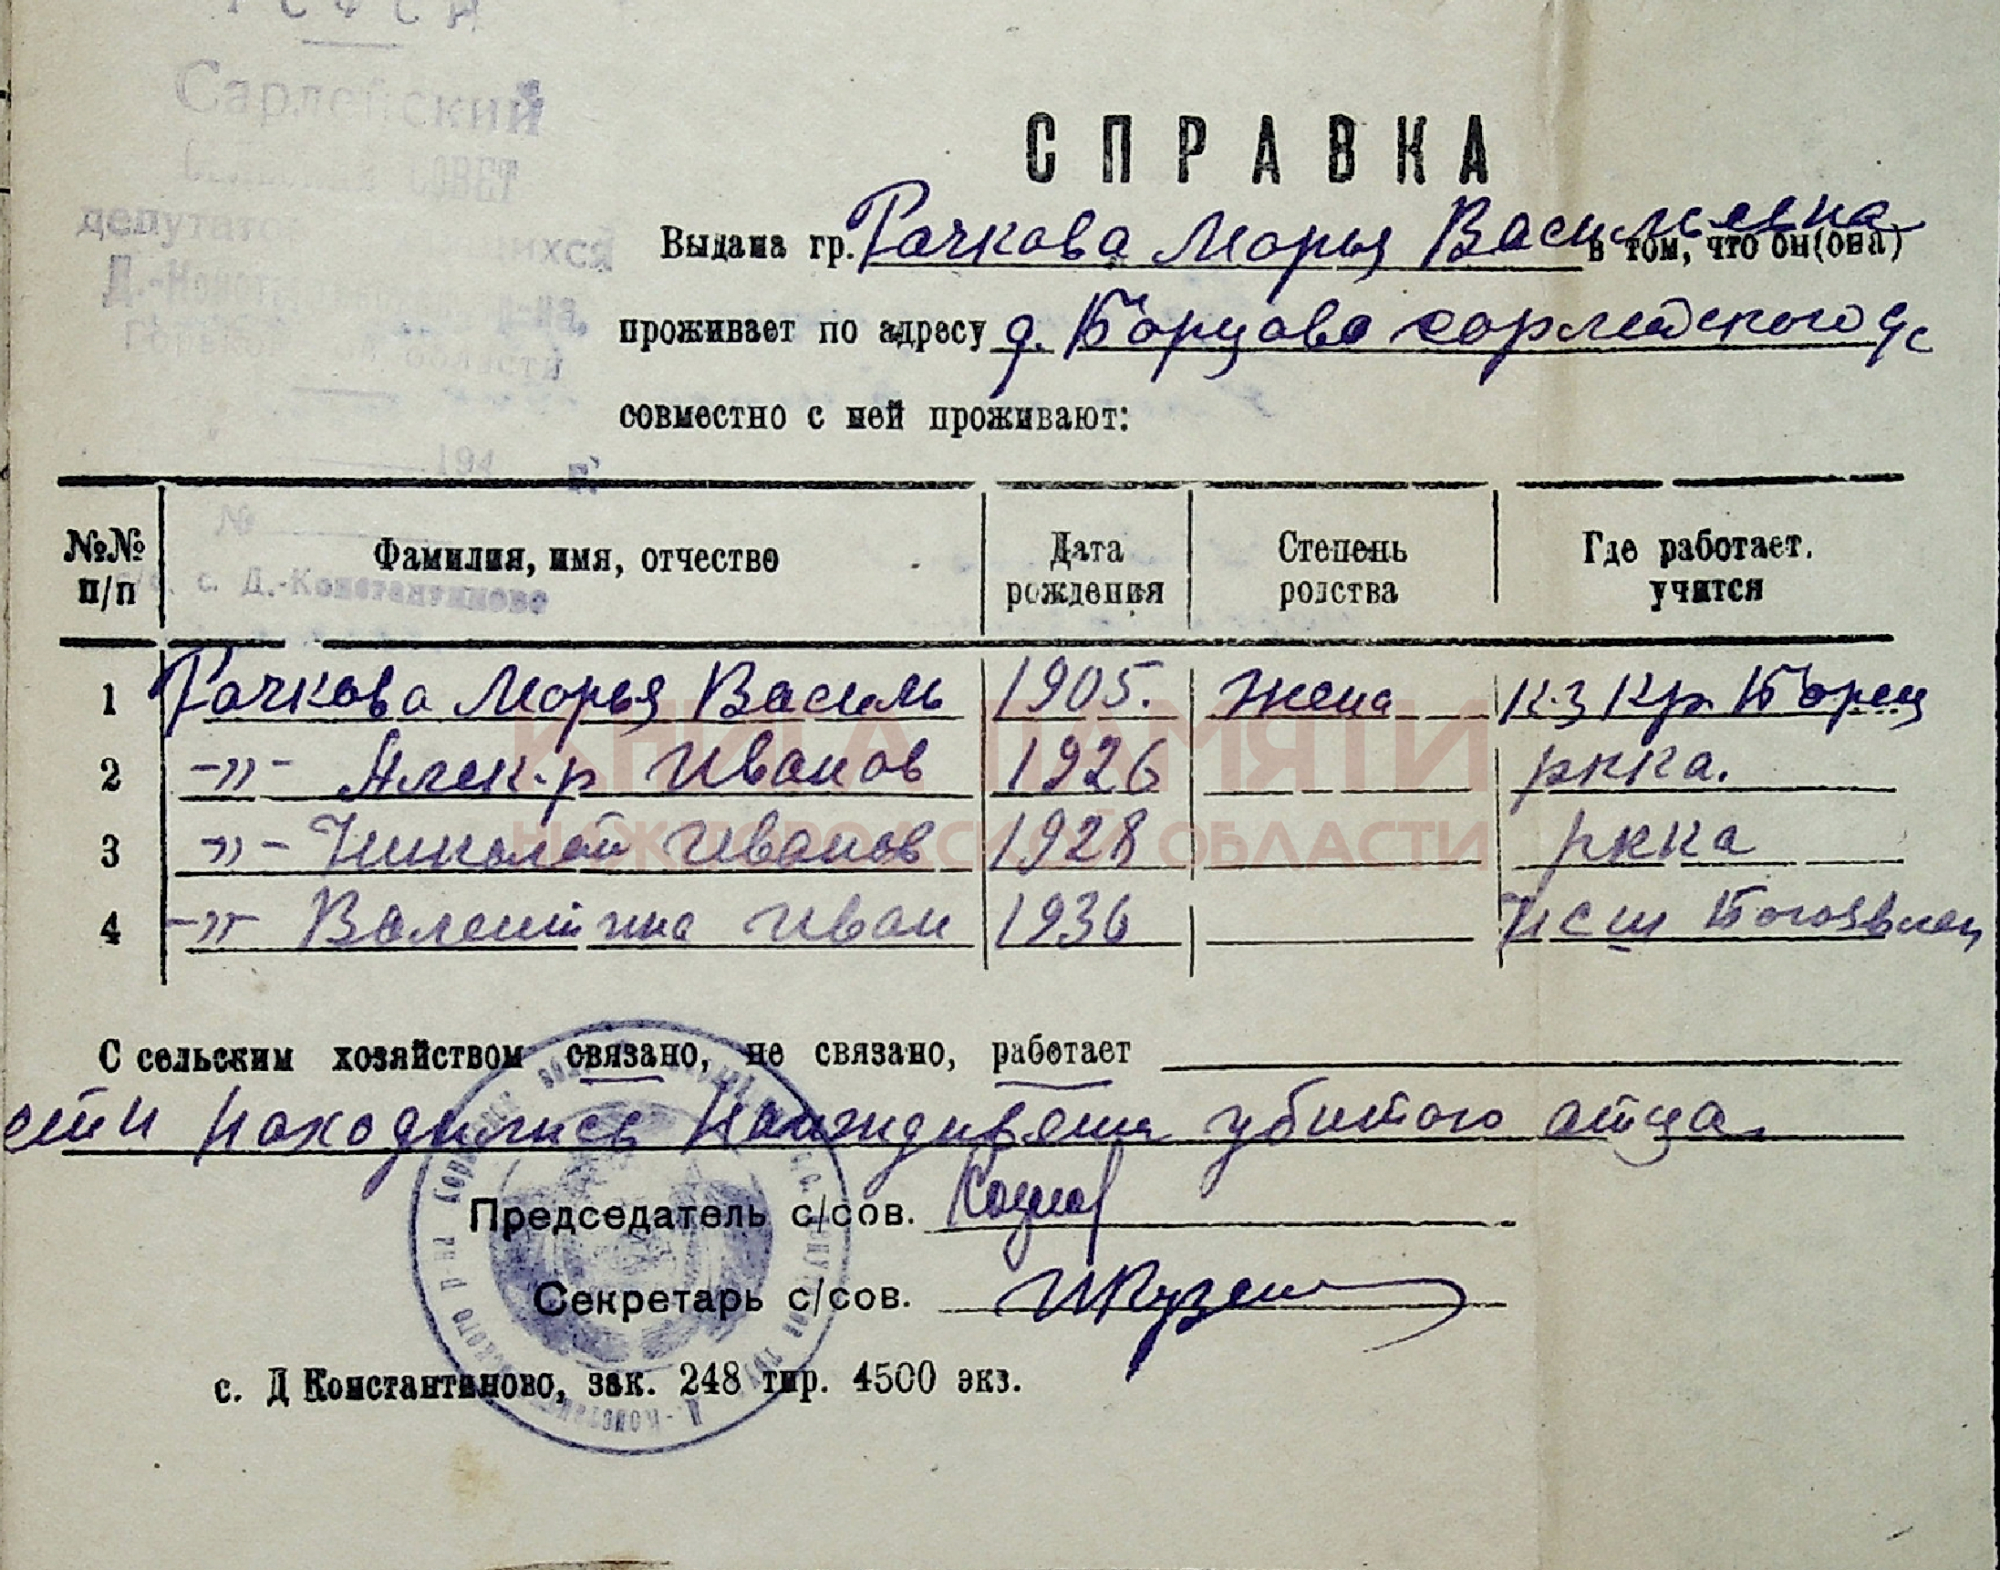 РСФСР
Сарлейский
Сельский СОВЕТ
депутатов
Д.-Константиновского р-на,
Горьковской области
194 г.
№
с. Д.-Константиново
СПРАВКА
Выдана гр. Рачкова Марья Васильевна в том, что он(она)
проживает по адресу д. Борцово сарлейского с/с
совместно с ней проживают:
№№ п/п Фамилия, имя, отчество Дата рождения Степень родства Где работает. учится
1 Рачкова Марья Василь 1905. жена К-з Кр. Борец
2 -"- Алек-р Иванов 1926 ркка.
3 -"- Николай Иванов 1928 ркка
4 -"- Валентина Иван 1936 НСШ Богоявлен
КНИГА ПАМЯТИ
НИЖЕГОРОДСКОЙ ОБЛАСТИ
С сельским хозяйством связано, не связано, работает
находились наиждивении убитого отца.
Председатель с/сов.
Секретарь с/сов.
с. Д Константиново, зак. 248 тир. 4500 экз.